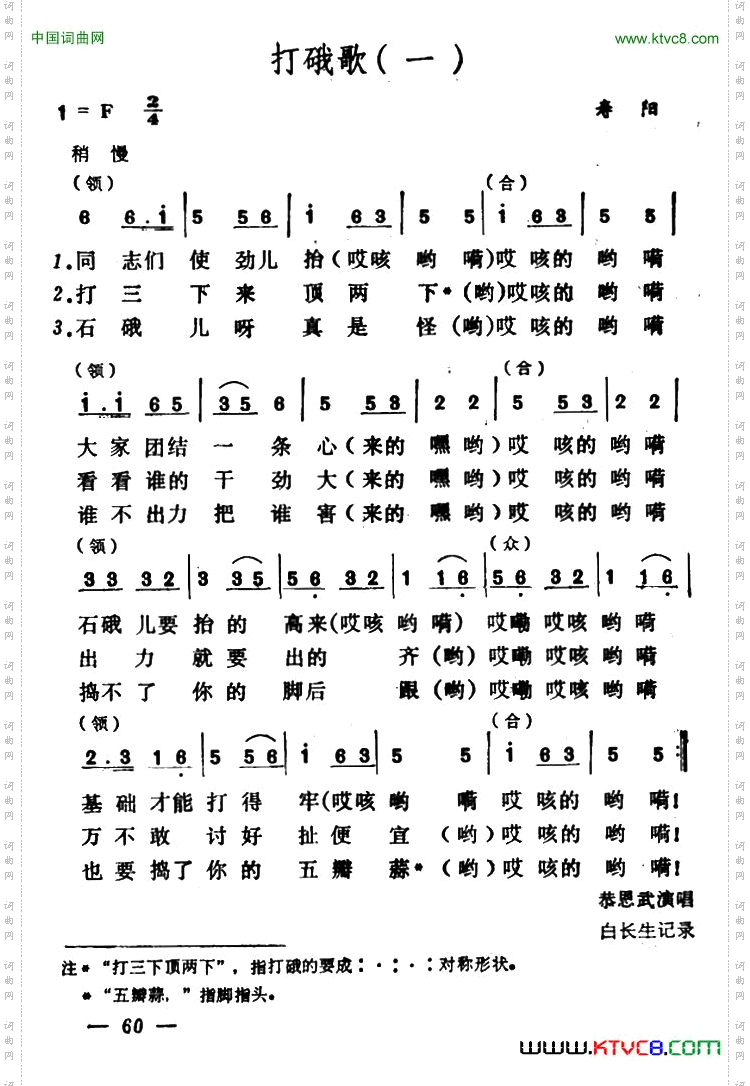 中国词曲网 www.ktvc8.com
打硪歌(一)
1=F 2/4 寿阳
稍慢
(领) (合)
6 6.i | 5 56 | i 63 | 5 5 | i 63 | 5 5 |
1.同志们使劲儿抬(哎咳哟嗬)哎咳的哟嗬
2.打三下来顶两下*(哟)哎咳的哟嗬
3.石硪儿呀真是怪(哟)哎咳的哟嗬
(领) (合)
i.i 65 | 35 6 | 5 53 | 2 2 | 5 53 | 2 2 |
大家团结一条心(来的嘿哟)哎咳的哟嗬
看看谁的干劲大(来的嘿哟)哎咳的哟嗬
谁不出力把谁害(来的嘿哟)哎咳的哟嗬
(领) (众)
33 32 | 3 35 | 56 32 | 1 16 | 56 32 | 1 16 |
石硪儿要抬的高来(哎咳哟嗬)哎嘞哎咳哟嗬
出力就要出的齐(哟)哎嘞哎咳哟嗬
捣不了你的脚后跟(哟)哎嘞哎咳哟嗬
(领) (合)
2.3 16 | 5 56 | i 63 | 5 5 | i 63 | 5 5 :|
基础才能打得牢(哎咳哟嗬哎咳的哟嗬!
万不敢讨好扯便宜(哟)哎咳的哟嗬!
也要捣了你的五瓣蒜*(哟)哎咳的哟嗬!
恭恩武演唱
白长生记录
注*“打三下顶两下”,指打硪的要成:·:·:对称形状。
*“五瓣蒜,”指脚指头。
— 60 —
www.KTVC8.com
词曲网